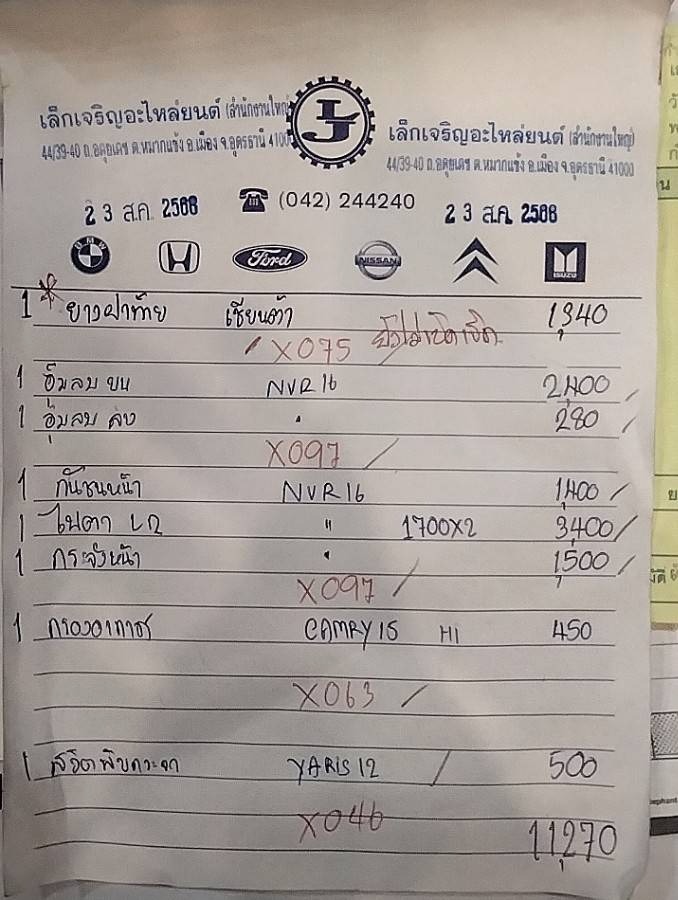 เล็กเจริญอะไหล่ยนต์ (สำนักงานใหญ่)
44/39-40 ถ.อดุยเดช ต.หมากแข้ง อ.เมือง จ.อุดรธานี 41000
LJ
เล็กเจริญอะไหล่ยนต์ (สำนักงานใหญ่)
44/39-40 ถ.อดุยเดช ต.หมากแข้ง อ.เมือง จ.อุดรธานี 41000
2 3 ส.ค. 2568 ☎ (042) 244240 2 3 ส.ค. 2568
BMW H Ford NISSAN ISUZU
1 * ยางฝาท้าย เซียนต้า 1,340
X075
1 อุ้มลม บน NVR16 2,400
1 อุ้มลม ล่าง " 280
X097
1 กันชนหน้า NVR16 1,400
1 ไฟตา LR " 1700X2 3,400
1 กระจังหน้า " 1,500
X097
1 กรองอากาศ CAMRY 15 HI 450
X063
1 สวิตพับกระจก YARIS 12 500
X046
11,270